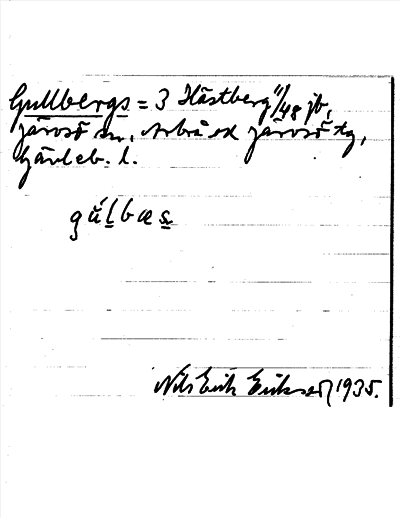 Gullbergs = 3 Hästberg 11/48 jb,
Järvsö sn, Arbrå och Järvsö tg,
Gävleb. l.
gúlbæs
Nils Erik Eriksson 1935.